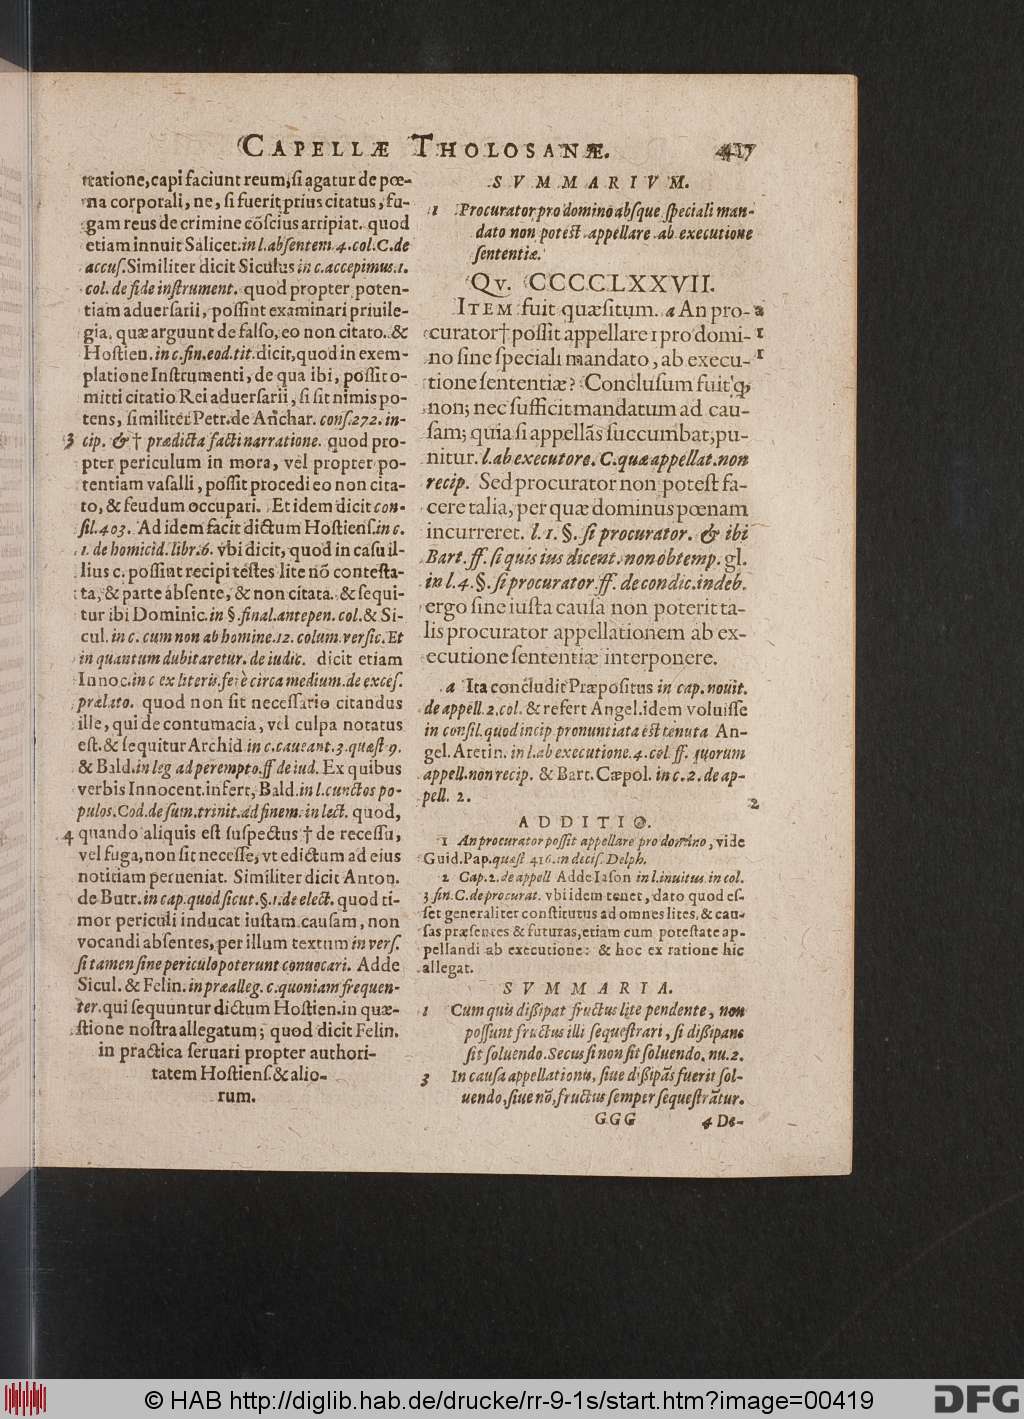 CAPELLÆ THOLOSANÆ. 417
tratione, capi faciunt reum, si agatur de pœ-
na corporali, ne, si fuerit prius citatus, fu-
gam reus de crimine cōscius arripiat. quod
etiam innuit Salicet. in l. absentem. 4. col. C. de
accus. Similiter dicit Siculus in c. accepimus. 1.
col. de fide instrument. quod propter poten-
tiam aduersarii, possint examinari priuile-
gia, quæ arguunt de falso, eo non citato. &
Hostien. in c. fin. eod. tit. dicit, quod in exem-
platione Instrumenti, de qua ibi, possit o-
mitti citatio Rei aduersarii, si sit nimis po-
tens, similiter Petr. de Anchar. cons. 272. in-
3 cip. & † prædicta facti narratione. quod pro-
pter periculum in mora, vel propter po-
tentiam vasalli, possit procedi eo non cita-
to, & feudum occupari. Et idem dicit con-
sil. 403. Ad idem facit dictum Hostiens. in c.
1. de homicid. libr. 6. vbi dicit, quod in casu il-
lius c. possint recipi testes lite nō contesta-
ta, & parte absente, & non citata. & sequi-
tur ibi Dominic. in §. final. antepen. col. & Si-
cul. in c. cum non ab homine. 12. colum. versic. Et
in quantum dubitaretur. de iudic. dicit etiam
Innoc. in c ex literis. ferè circa medium. de exces.
prælato. quod non sit necessario citandus
ille, qui de contumacia, vel culpa notatus
est. & sequitur Archid in c. caueant. 3. quæst 9.
& Bald. in leg ad perempto. ff de iud. Ex quibus
verbis Innocent. infert, Bald. in l. cunctos po-
pulos. Cod. de sum. trinit. ad finem. in lect. quod,
4 quando aliquis est suspectus † de recessu,
vel fuga, non sit necesse, vt edictum ad eius
notitiam perueniat. Similiter dicit Anton.
de Butr. in cap. quod sicut. §. 1. de elect. quod ti-
mor periculi inducat iustam causam, non
vocandi absentes, per illum textum in vers.
si tamen sine periculo poterunt conuocari. Adde
Sicul. & Felin. in præalleg. c. quoniam frequen-
ter. qui sequuntur dictum Hostien. in quæ-
stione nostra allegatum; quod dicit Felin.
in practica seruari propter authori-
tatem Hostiens. & alio-
rum.
SVMMARIVM.
1 Procurator pro domino absque speciali man-
dato non potest appellare ab executione
sententiæ.
QV. CCCCLXXVII.
ITEM fuit quæsitum. a An pro- a
curator † possit appellare 1 pro domi- 1
no sine speciali mandato, ab execu- 1
tione sententiæ? Conclusum fuit ꝙ
non; nec sufficit mandatum ad cau-
sam; quia si appellās succumbat, pu-
nitur. l. ab executore. C. quæ appellat. non
recip. Sed procurator non potest fa-
cere talia, per quæ dominus pœnam
incurreret. l. 1. §. si procurator. & ibi
Bart. ff. si quis ius dicent. non obtemp. gl.
in l. 4. §. si procurator. ff. de condic. indeb.
ergo sine iusta causa non poterit ta-
lis procurator appellationem ab ex-
ecutione sententiæ interponere.
a Ita concludit Præpositus in cap. nouit.
de appell. 2. col. & refert Angel. idem voluisse
in consil. quod incip. pronuntiata est tenuta An-
gel. Aretin. in l. ab executione. 4. col. ff. quorum
appell. non recip. & Bart. Cæpol. in c. 2. de ap-
pell. 2. 2
ADDITIO.
1 An procurator possit appellare pro domino, vide
Guid. Pap. quæst 416. in decis. Delph.
2 Cap. 2. de appell Adde Iason in l. inuitus. in col.
3 fin. C. de procurat. vbi idem tenet, dato quod es-
set generaliter constitutus ad omnes lites, & cau-
sas præsentes & futuras, etiam cum potestate ap-
pellandi ab executione: & hoc ex ratione hic
allegat.
SVMMARIA.
1 Cum quis dissipat fructus lite pendente, non
possunt fructus illi sequestrari, si dissipans
sit soluendo. Secus si non sit soluendo. nu. 2.
3 In causa appellationis, siue dissipās fuerit sol-
uendo, siue nō, fructus semper sequestrātur.
GGG 4 De-
© HAB http://diglib.hab.de/drucke/rr-9-1s/start.htm?image=00419
DFG